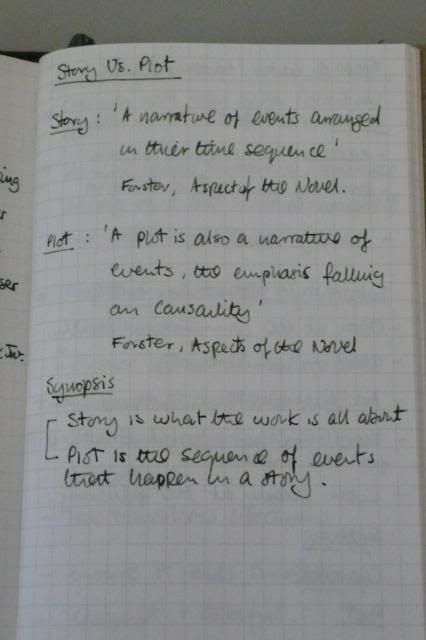 Story Vs. Plot
Story : 'A narrative of events arranged
in their time sequence'
Forster, Aspect of the Novel.
ing
Plot : 'A plot is also a narrative of
events, the emphasis falling
on Causality'
Forster, Aspects of the Novel
Synopsis
Story is what the work is all about
Plot is the sequence of events
that happen in a story.